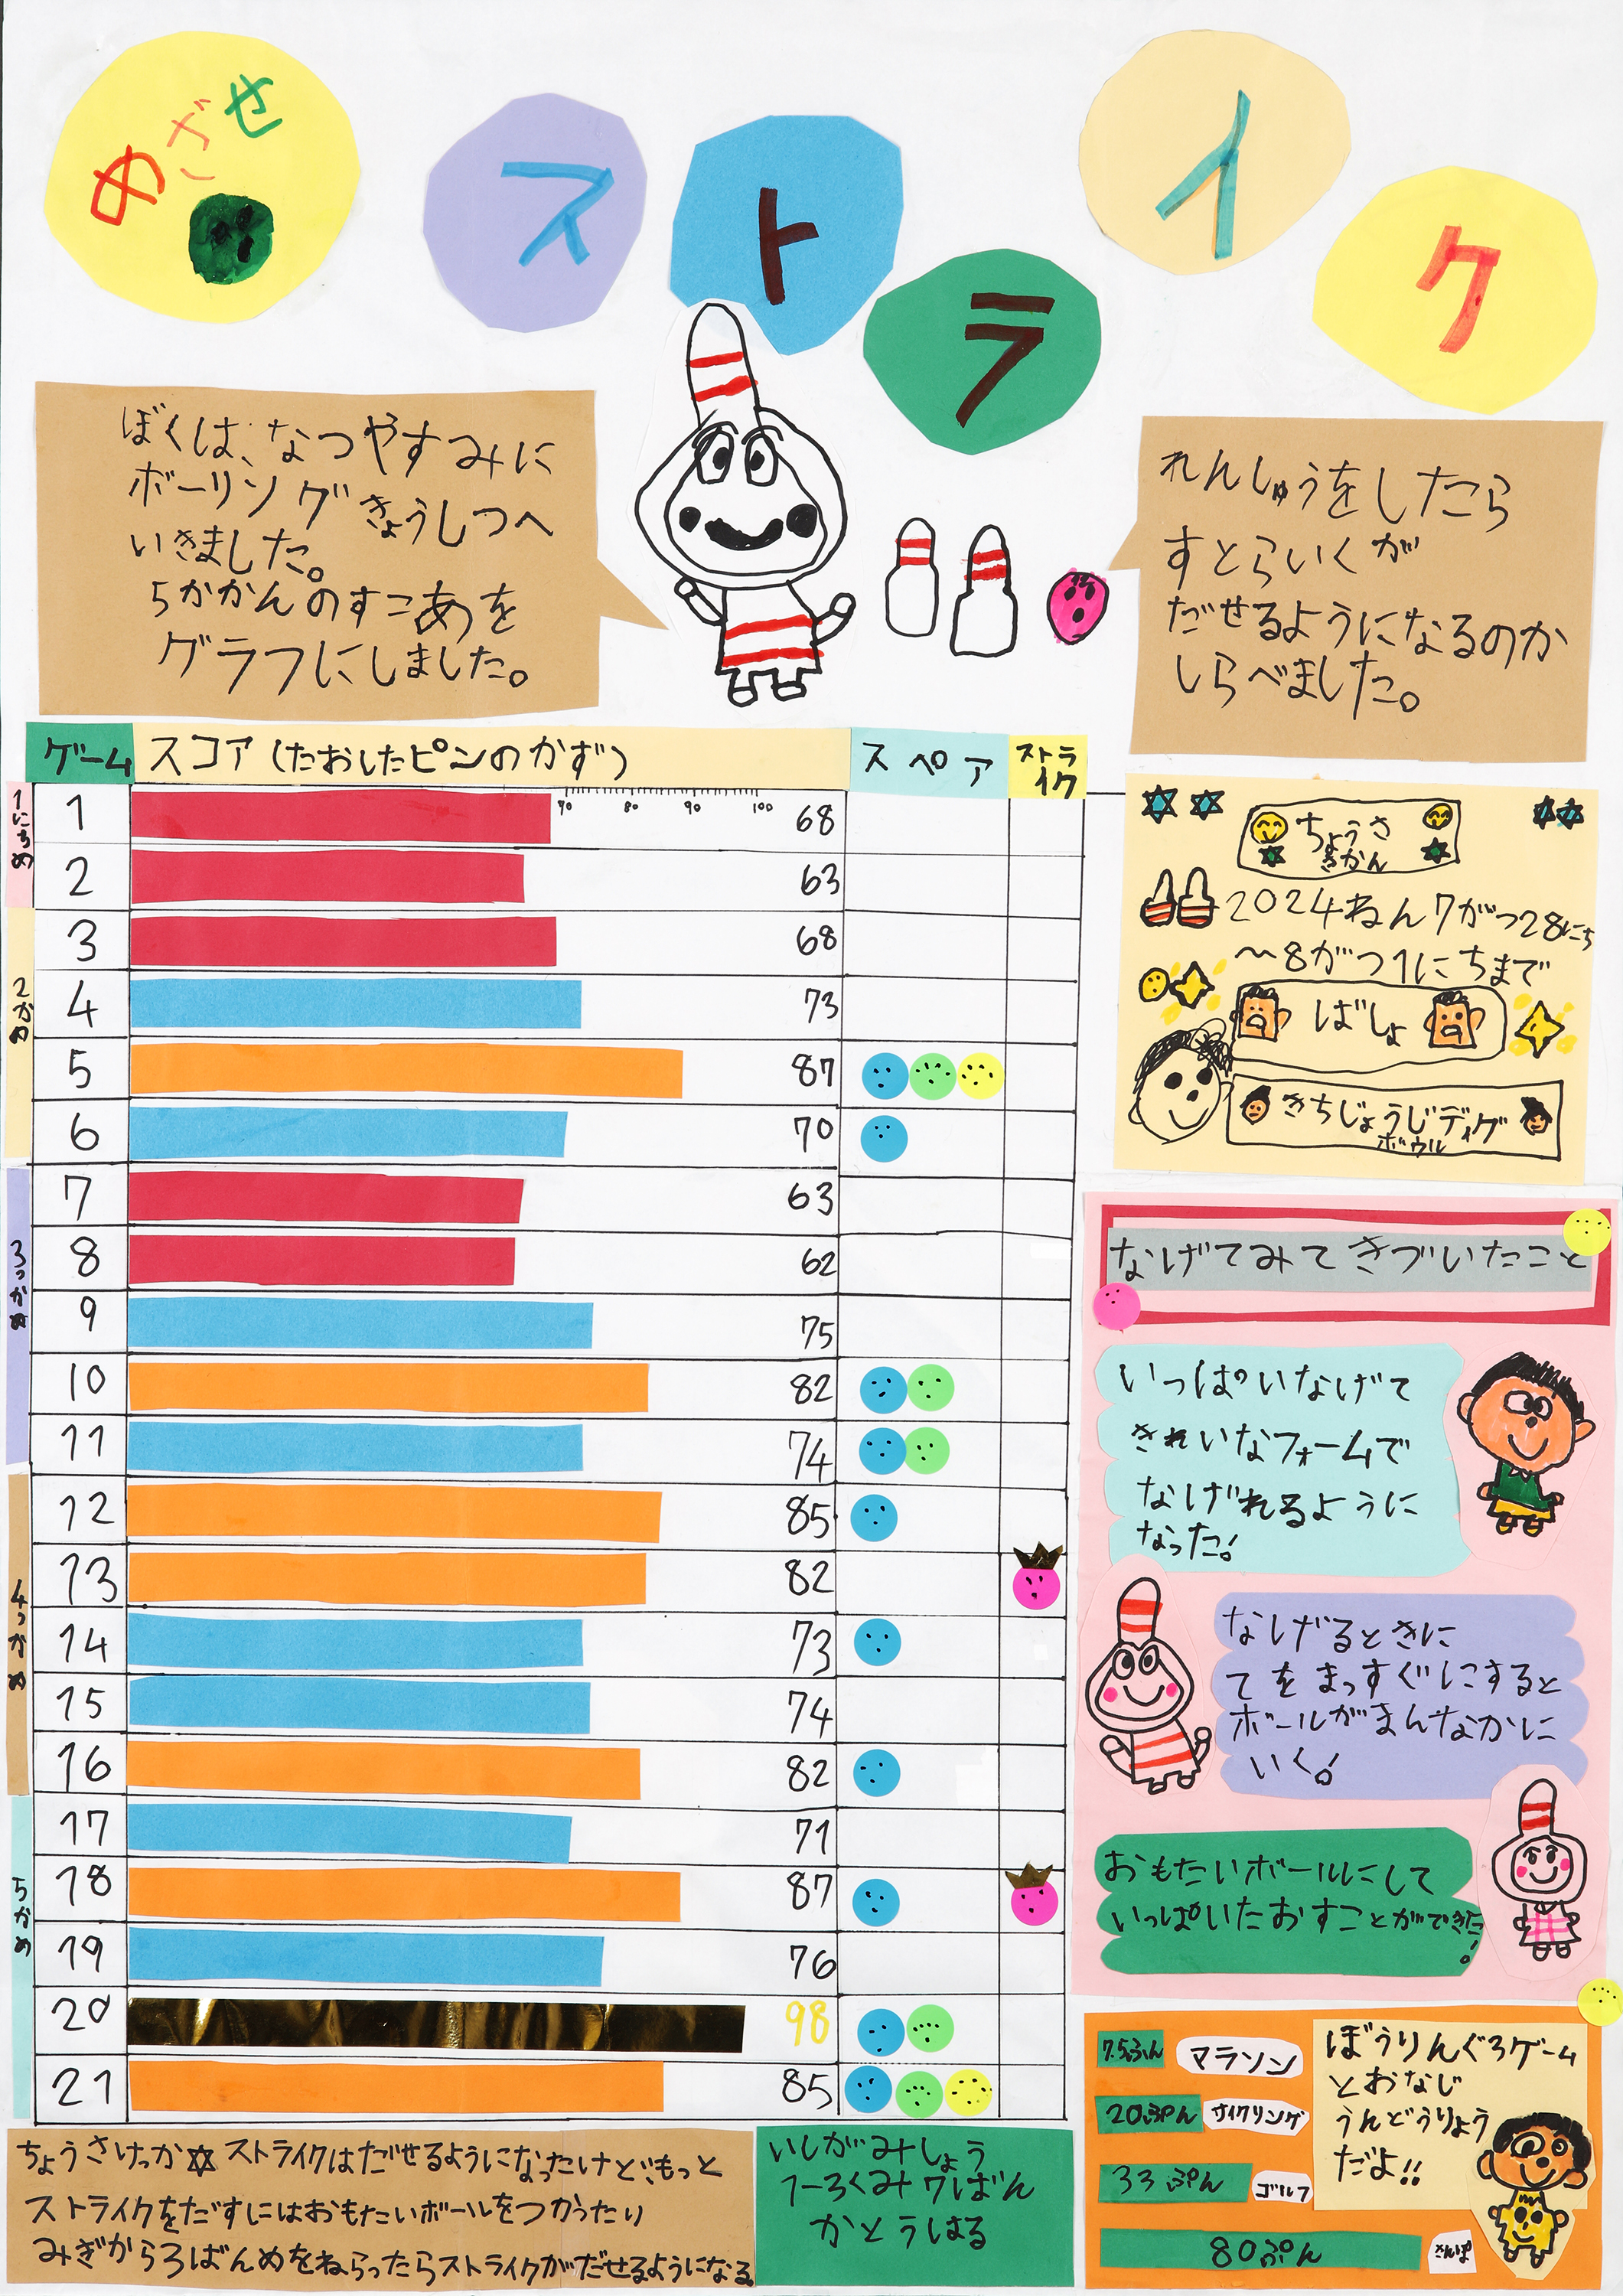 めざせ
ストライク
ぼくは、なつやすみに
ボーリングきょうしつへ
いきました。
5かかんのすこあを
グラフにしました。
れんしゅうをしたら
すとらいくが
だせるようになるのか
しらべました。
ゲーム スコア(たおしたピンのかず) スペア ストライク
70 80 90 100
1にちめ
1 68
2 63
2かめ
3 68
4 73
5 87
6 70
3っかめ
7 63
8 62
9 75
10 82
11 74
4っかめ
12 85
13 82
14 73
15 74
16 82
5かめ
17 71
18 87
19 76
20 98
21 85
ちょうさ
きかん
2024ねん7がつ28にち
〜8がつ1にちまで
ばしょ
きちじょうじディグ
ボウル
なげてみてきづいたこと
いっぱいなげて
きれいなフォームで
なげれるように
なった!
なげるときに
てをまっすぐにすると
ボールがまんなかに
いく!
おもたいボールにして
いっぱいたおすことができた!
7.5ふん マラソン
20ぷん サイクリング
33ぷん ゴルフ
80ぷん さんぽ
ぼうりんぐ3ゲーム
とおなじ
うんどうりょう
だよ!!
ちょうさけっか☆ストライクはだせるようになったけどもっと
ストライクをだすにはおもたいボールをつかったり
みぎから3ばんめをねらったらストライクがだせるようになる。
いしがみしょう
1-3くみ7ばん
かとうはる